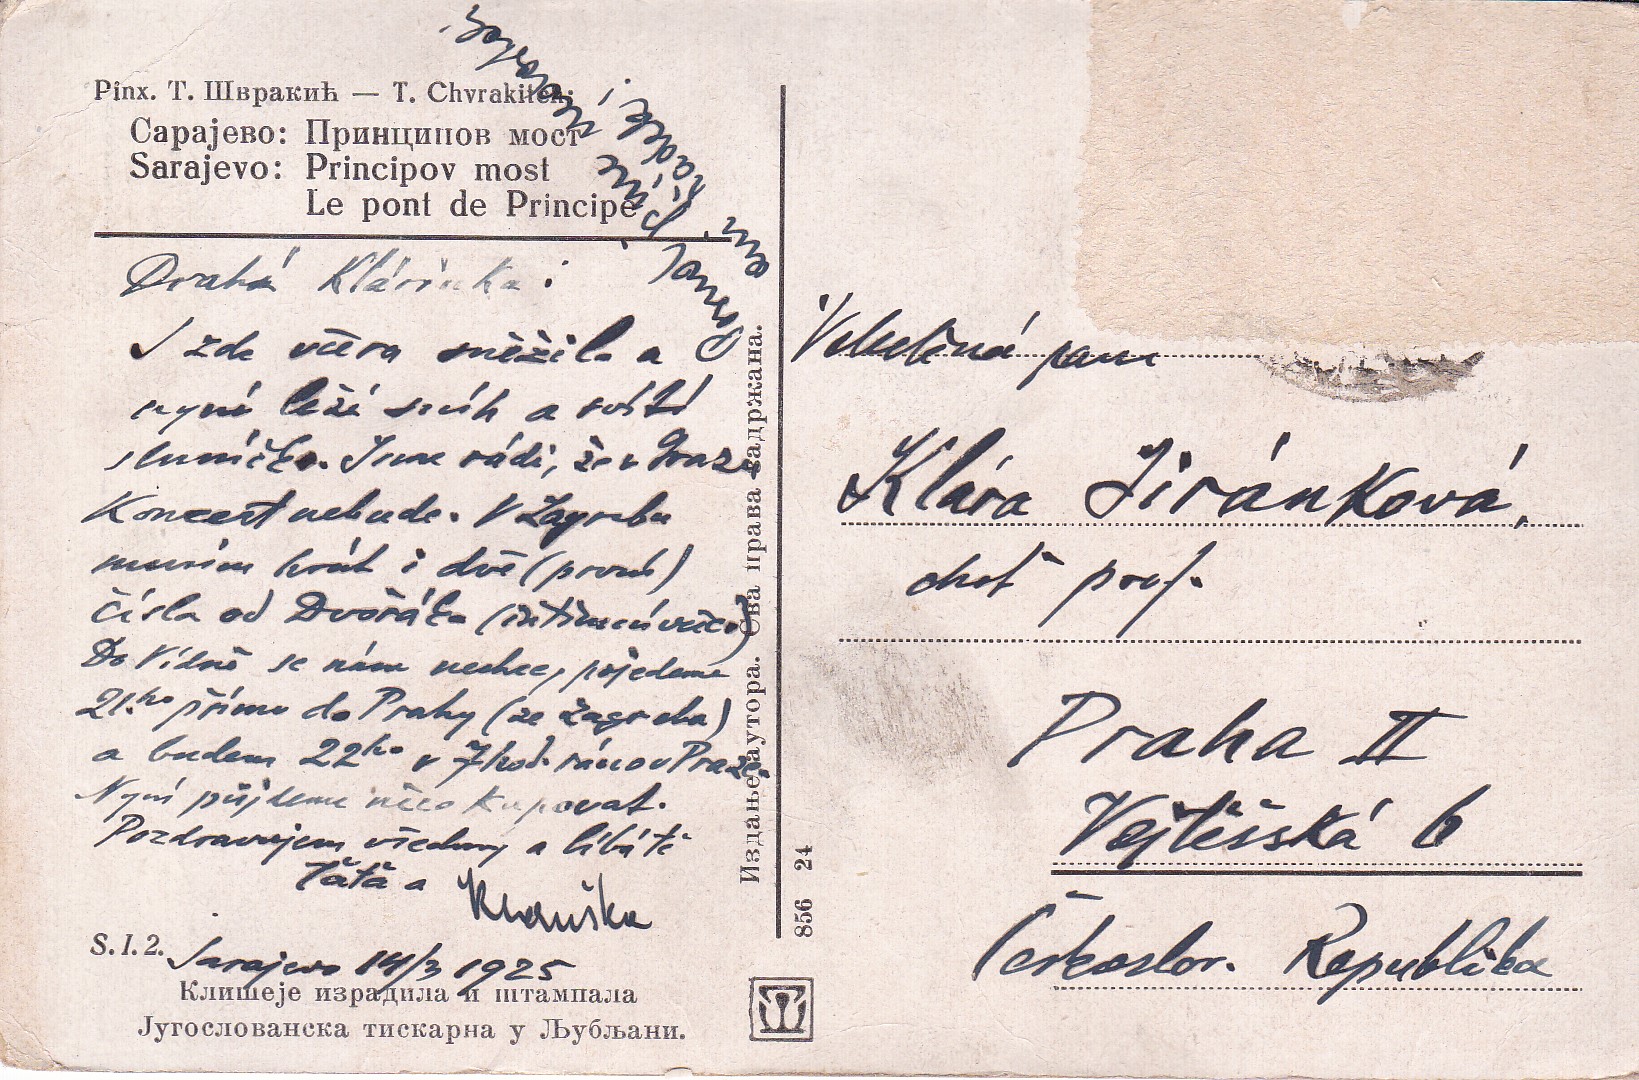 Pinx. Т. Швракић — T. Chvrakitch:
Сарајево: Принципов мост
Sarajevo: Principov most
Le pont de Principe
Drahá Klárinka!
I zde včera sněžilo a
nyní leží sníh a svítí
sluníčko. Jsme rádi, že v Graze
Koncert nebude. V Zagrebu
musím hrát i dvě (první)
čísla od Dvořáka (intimní večer)
Do Vídně se nám nechce, pojedeme
21.ho přímo do Prahy (ze Zagreba)
a budem 22ho v 7 hod. ráno v Praze.
Nyní půjdeme něco kupovat.
Pozdravujem všechny a líbá tě
Táta a
S. I. 2. Sarajevo 14/3 1925
Клишеје израдила и штампала
Југослованска тискарна у Љубљани.
Издање аутора. Сва права задржана.
856 24
Velectěná paní
Klára Jiránková,
choť prof.
Praha II
Vojtěšská 6
Českoslov. Republika